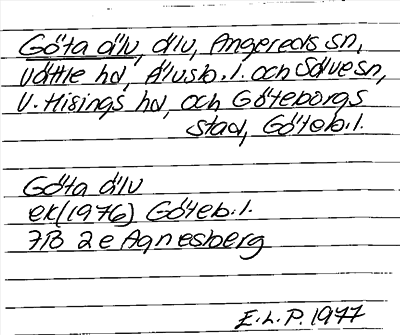 Göta älv, älv, Angereds sn,
Vättle hd, Älvsb. l. och Säve sn,
V. Hisings hd, och Göteborgs
stad, Göteb. l.
Göta älv
ek (1976) Göteb. l.
7B 2e Agnesberg
E.L.P. 1977